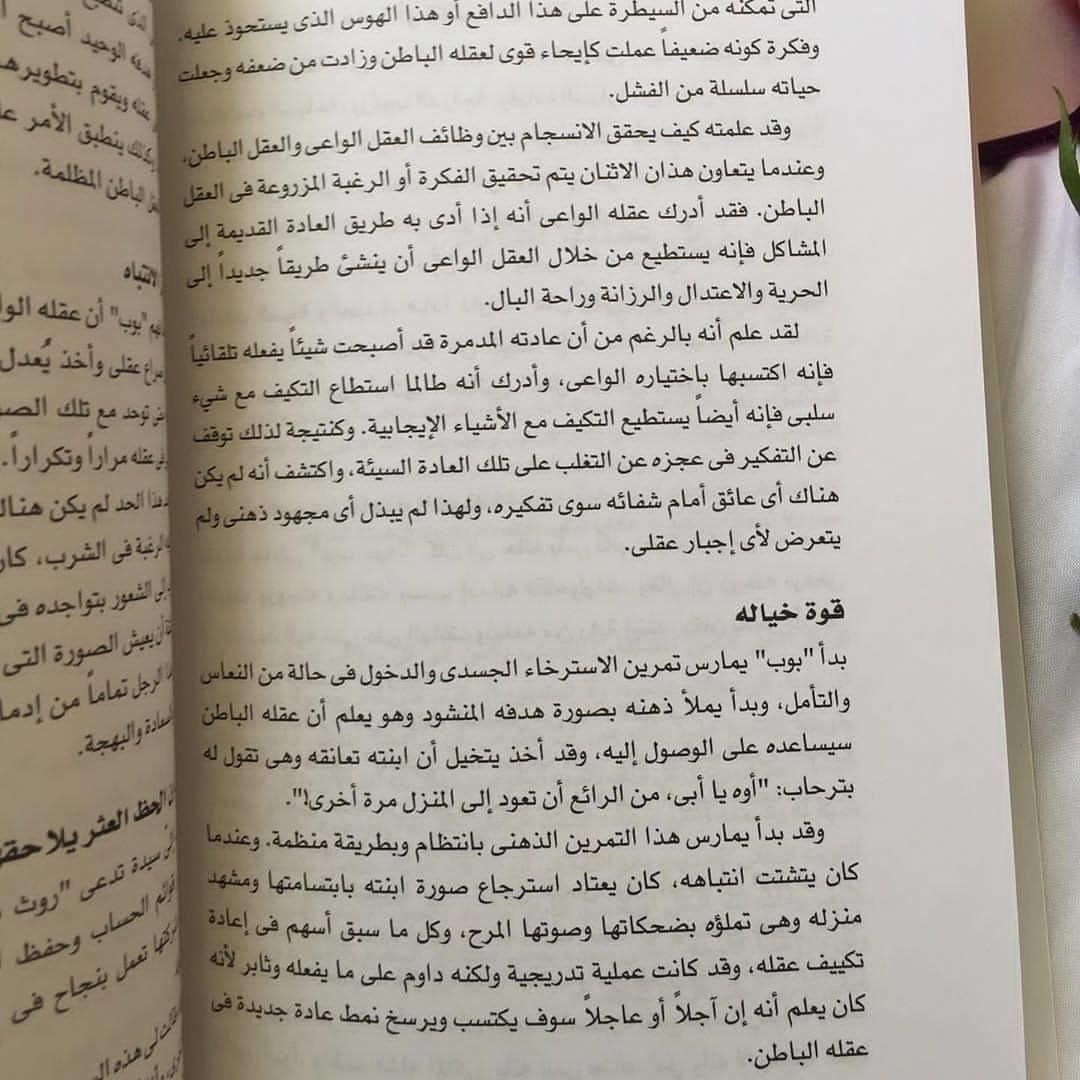 التى تمكنه من السيطرة على هذا الدافع أو هذا الهوس الذى يستحوذ عليه.
وفكرة كونه ضعيفاً عملت كإيحاء قوى لعقله الباطن وزادت من ضعفه وجعلت
حياته سلسلة من الفشل.
وقد علمته كيف يحقق الانسجام بين وظائف العقل الواعى والعقل الباطن،
وعندما يتعاون هذان الاثنان يتم تحقيق الفكرة أو الرغبة المزروعة فى العقل
الباطن. فقد أدرك عقله الواعى أنه إذا أدى به طريق العادة القديمة إلى
المشاكل فإنه يستطيع من خلال العقل الواعى أن ينشئ طريقاً جديداً إلى
الحرية والاعتدال والرزانة وراحة البال.
لقد علم أنه بالرغم من أن عادته المدمرة قد أصبحت شيئاً يفعله تلقائياً
فإنه اكتسبها باختياره الواعى، وأدرك أنه طالما استطاع التكيف مع شيء
سلبى فإنه أيضاً يستطيع التكيف مع الأشياء الإيجابية. وكنتيجة لذلك توقف
عن التفكير فى عجزه عن التغلب على تلك العادة السيئة، واكتشف أنه لم يكن
هناك أى عائق أمام شفائه سوى تفكيره، ولهذا لم يبذل أى مجهود ذهنى ولم
يتعرض لأى إجبار عقلى.
قوة خياله
بدأ "بوب" يمارس تمرين الاسترخاء الجسدى والدخول فى حالة من النعاس
والتأمل، وبدأ يملأ ذهنه بصورة هدفه المنشود وهو يعلم أن عقله الباطن
سيساعده على الوصول إليه، وقد أخذ يتخيل أن ابنته تعانقه وهى تقول له
بترحاب: "أوه يا أبى، من الرائع أن تعود إلى المنزل مرة أخرى!".
وقد بدأ يمارس هذا التمرين الذهنى بانتظام وبطريقة منظمة. وعندما
كان يتشتت انتباهه، كان يعتاد استرجاع صورة ابنته بابتسامتها ومشهد
منزله وهى تملؤه بضحكاتها وصوتها المرح، وكل ما سبق أسهم فى إعادة
تكييف عقله، وقد كانت عملية تدريجية ولكنه داوم على ما يفعله وثابر لأنه
كان يعلم أنه إن آجلاً أو عاجلاً سوف يكتسب ويرسخ نمط عادة جديدة فى
عقله الباطن.
الوحيد أصبح
ويقوم بتطويرها
ينطبق الأمر
الباطن المظلمة.
"بوب" أن عقله
عقلى وأخذ يُعدل
توحد مع تلك
عقله مراراً وتكراراً.
الحد لم يكن
الرغبة فى الشرب، كان
الشعور بتواجده فى
يعيش الصورة التى
الرجل تماماً من
والبهجة.
الحظ العثر يلاحق
سيدة تدعى "روث
قوائم الحساب وحفظ
تعمل بنجاح فى